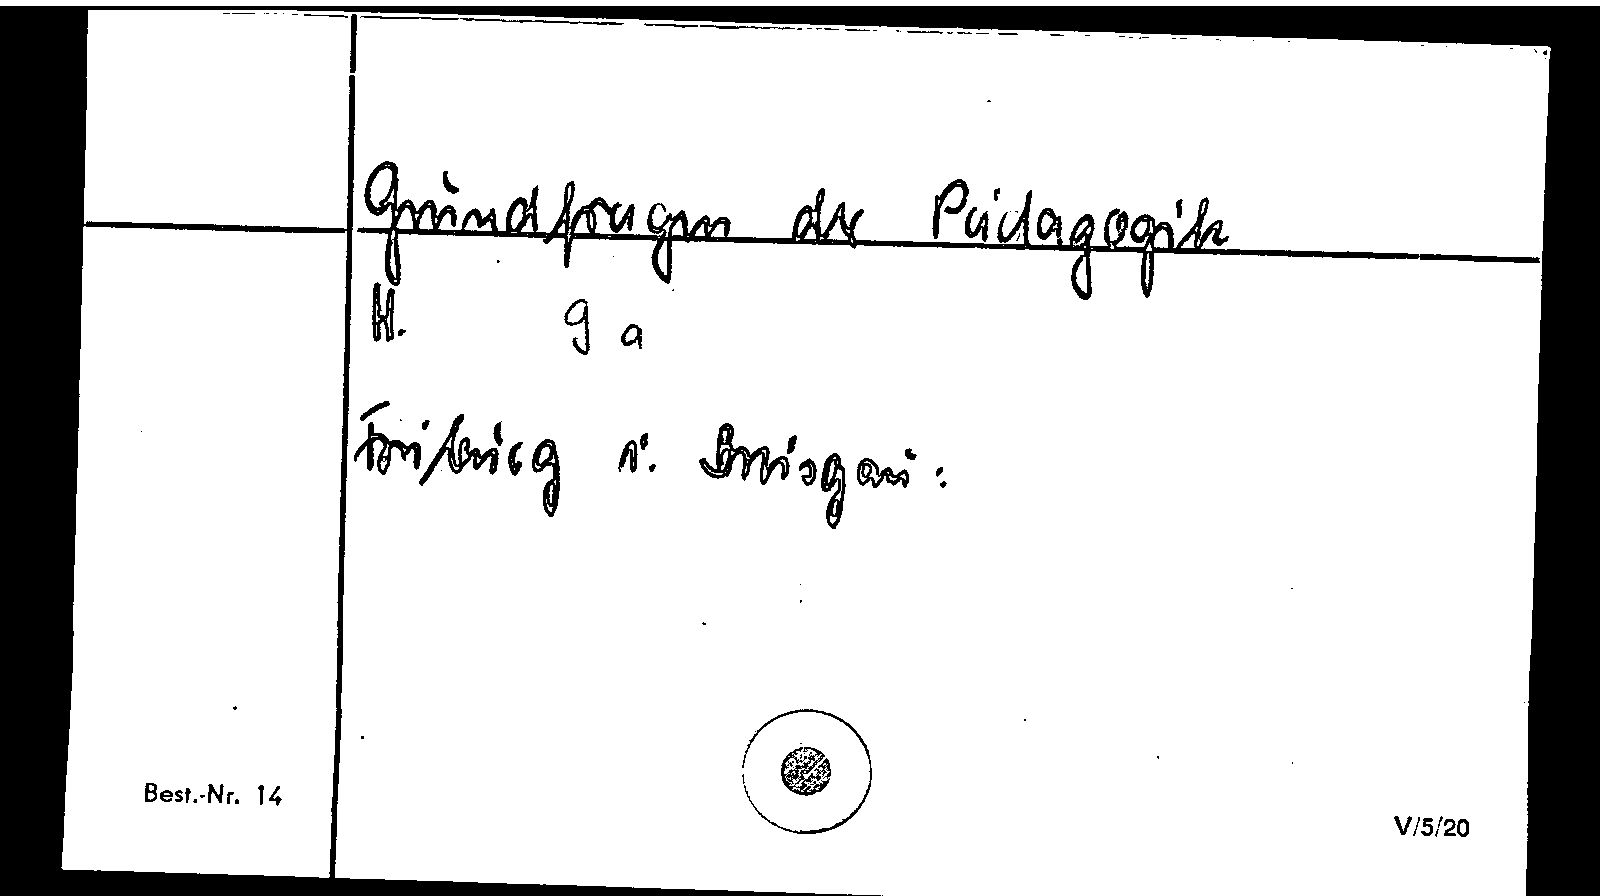 Grundfragen der Pädagogik
H. 9 a
Freiburg i. Breisgau:
Best.-Nr. 14
V/5/20